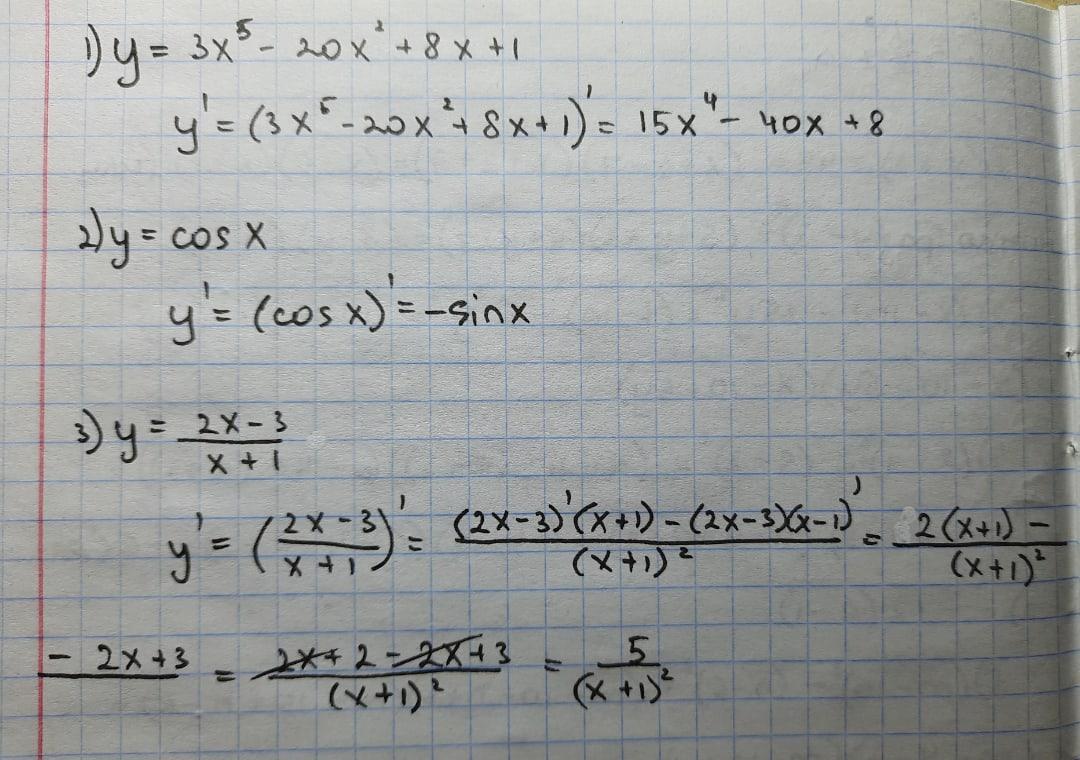 1) y = 3x⁵ - 20x² + 8x + 1
y' = (3x⁵ - 20x² + 8x + 1)' = 15x⁴ - 40x + 8
2) y = cos x
y' = (cos x)' = -sin x
3) y = (2x - 3)/(x + 1)
y' = ((2x - 3)/(x + 1))' = ((2x - 3)'(x + 1) - (2x - 3)(x - 1)')/(x + 1)² = (2(x + 1) -)/(x + 1)²
- 2x + 3 = (2x + 2 - 2x + 3)/(x + 1)² = 5/(x + 1)²